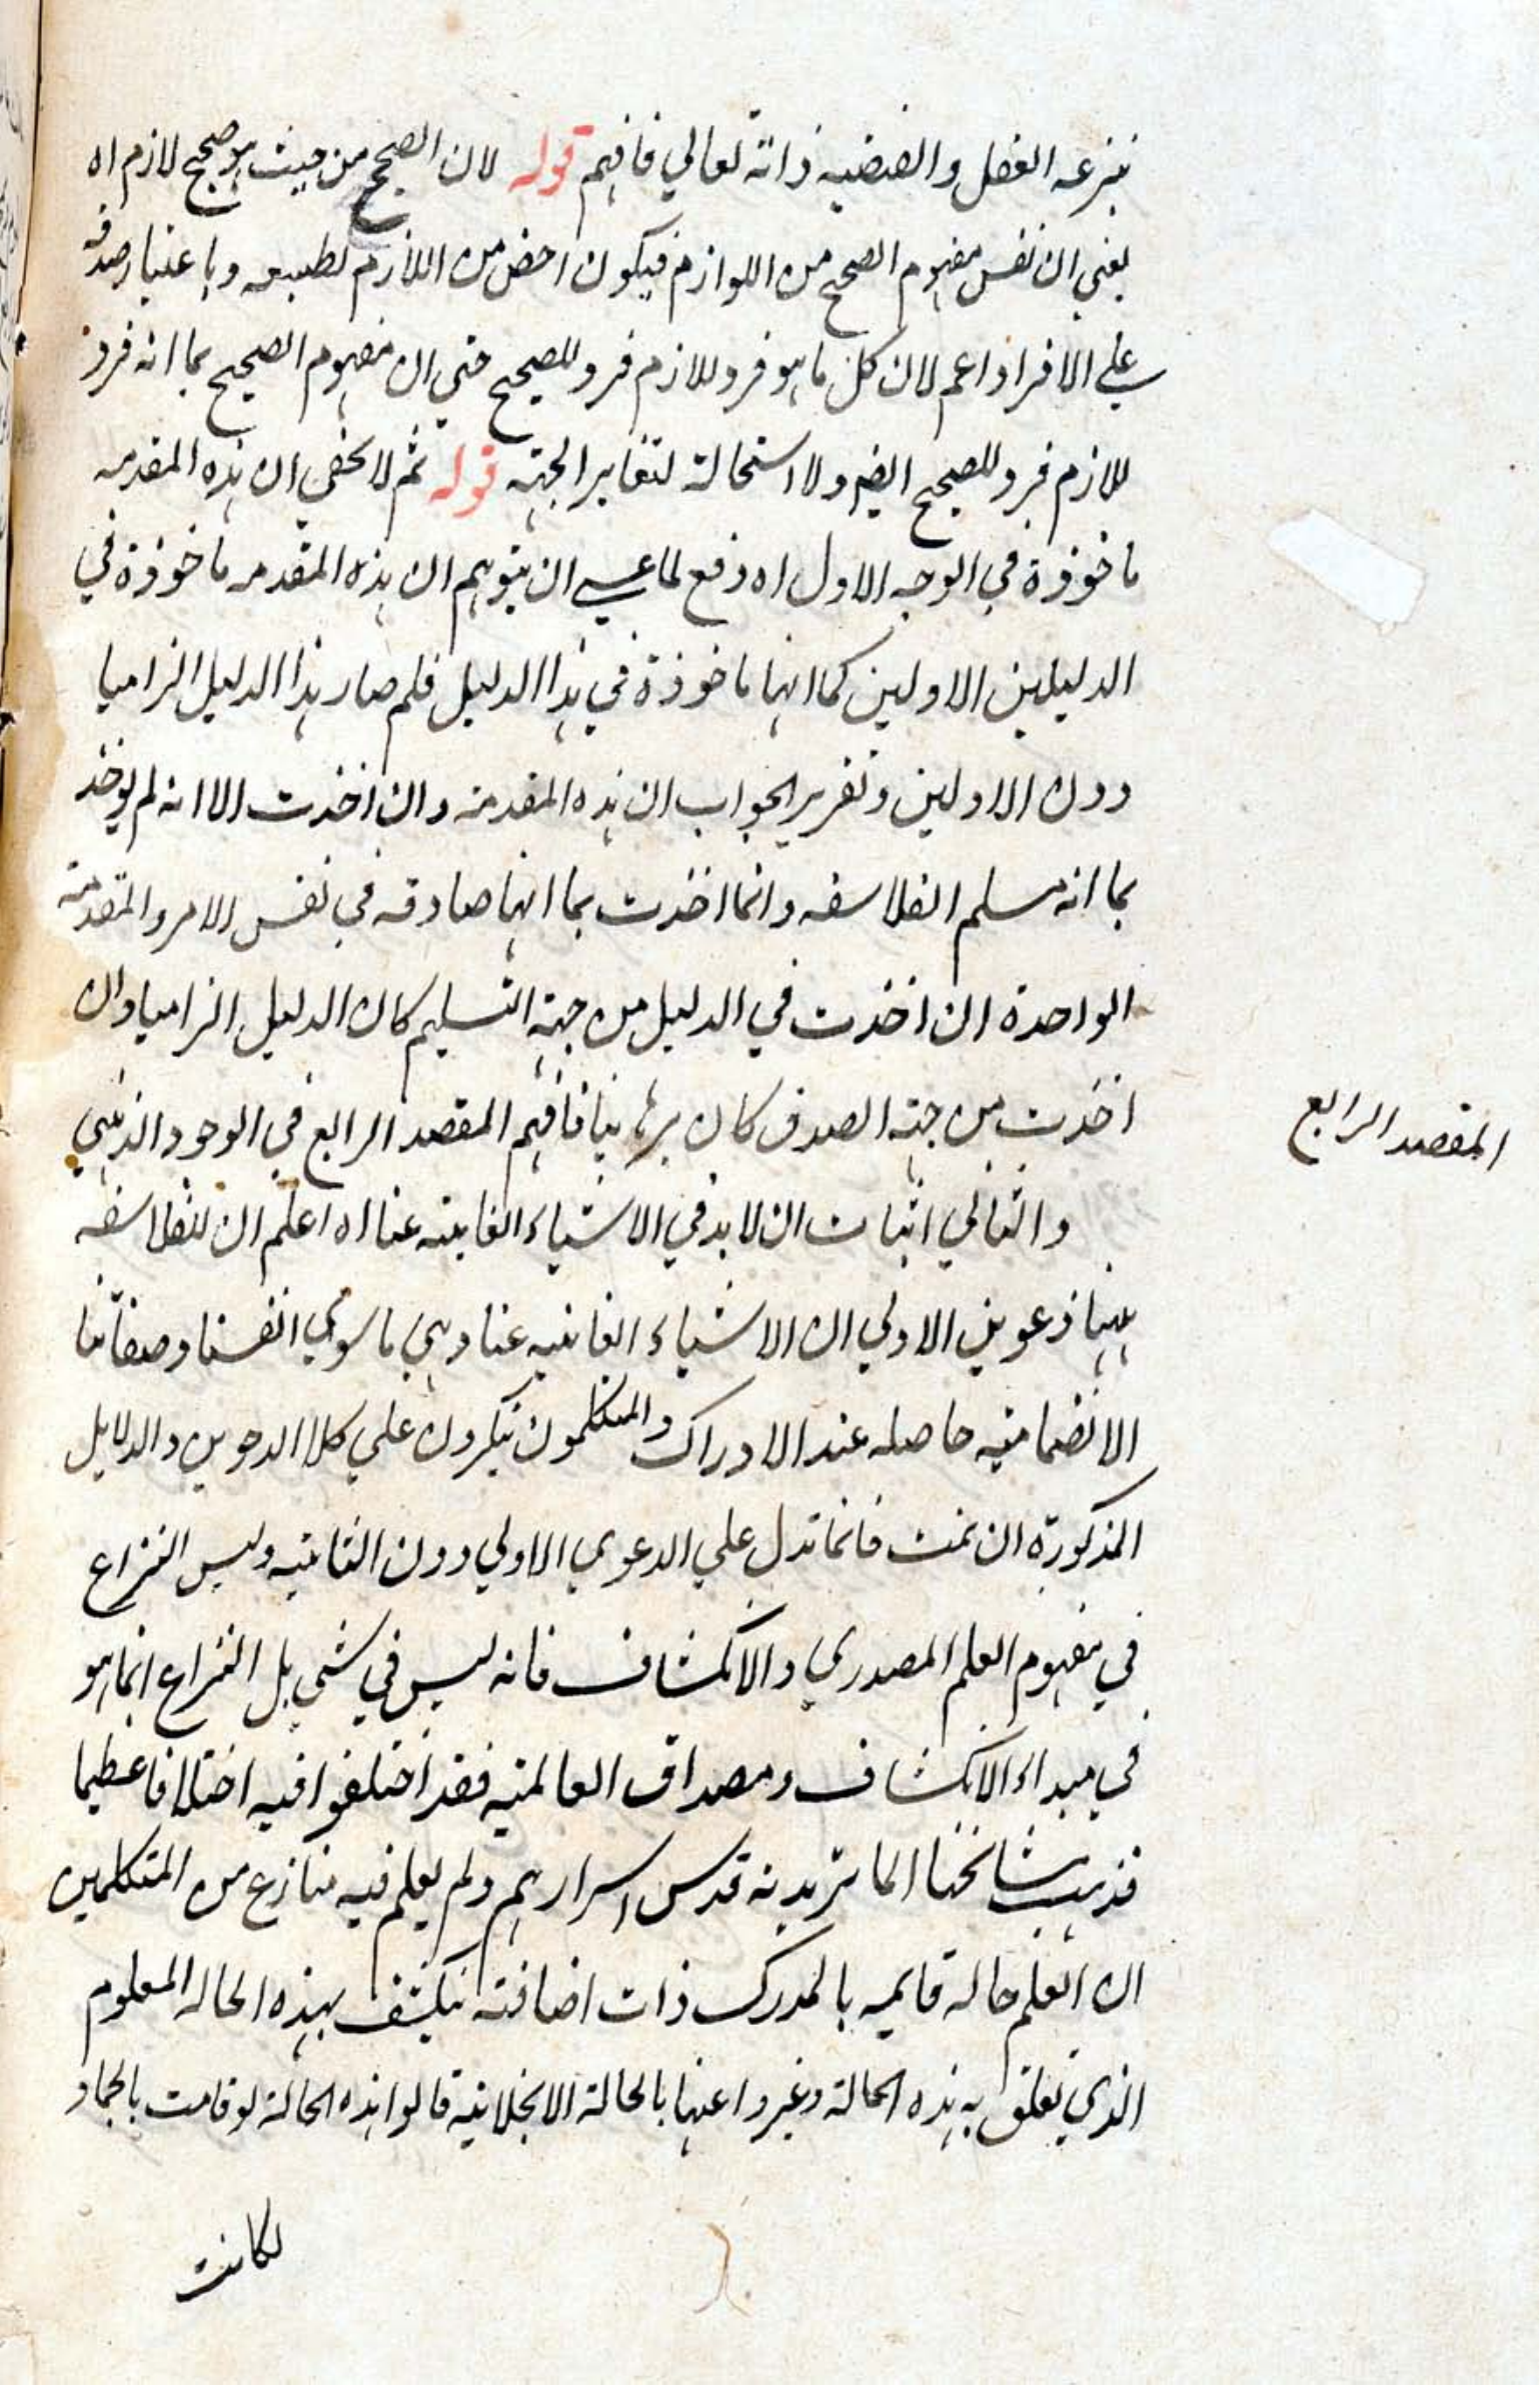 ينزعه العقل والقضيه ذاته تعالي فافهم قوله لان الصحيح من حيث هو صحيح لازم اه
يعني ان نفس مفهوم الصحيح من اللوازم فيكون اخص من اللازم لطبيعه وباعتبار صدقه
علي الافراد اعم لان كل ما هو فرد للازم فرد للصحيح حتي ان مفهوم الصحيح بما انه فرد
للازم فرد للصحيح ايضا ولا استحالة لتغاير الجهته قوله ثم لا يخفي ان هذه المقدمه
ماخوذة في الوجه الاول اه دفع لما عسي ان يتوهم ان هذه المقدمه ماخوذة في
الدليلين الاولين كما انها ماخوذة في هذا الدليل فلم صار هذا الدليل الزاميا
دون الاولين وتقرير الجواب ان هذه المقدمة وان اخذت الا انه لم يوخذ
بما انه مسلم الفلاسفه وانما اخذت بما انها صادقه في نفس الامر والمقدمة
الواحدة ان اخذت في الدليل من جهة التسليم كان الدليل الزاميا وان
اخذت من جهة الصدق كان برهانيا فافهم المقصد الرابع في الوجود الذهني
المقصد الرابع
والثاني اثبات ان لا بد في الاشياء الغايبته عنا اه اعلم ان للفلاسفه
ههنا دعوين الاولي ان الاشياء الغايبيه عنا وهي ما سوي انفسنا وصفاتنا
الانضماميه حاصله عند الادراك والمتكلمون ينكرون علي كلا الدعوين والدلايل
المذكورة ان تمت فانما تدل علي الدعوي الاولي دون الثانيه وليس النزاع
في مفهوم العلم المصدري والانكشاف فانه ليس في شي بل النزاع انما هو
في مبداء الانكشاف ومصداق العالميه فقد اختلفوا فيه اختلافا عظيما
فذهب مشائخنا الماتريدية قدس اسرارهم ولم يعلم فيه منازع من المتكلمين
ان العلم حاله قايمه بالمدرك ذات اضافته ينكشف بهذه الحاله المعلوم
الذي تعلق به هذه الحالة وعبروا عنها بالحالة الانجلائية قالوا هذه الحالة لو قامت بالجماد
لكانت